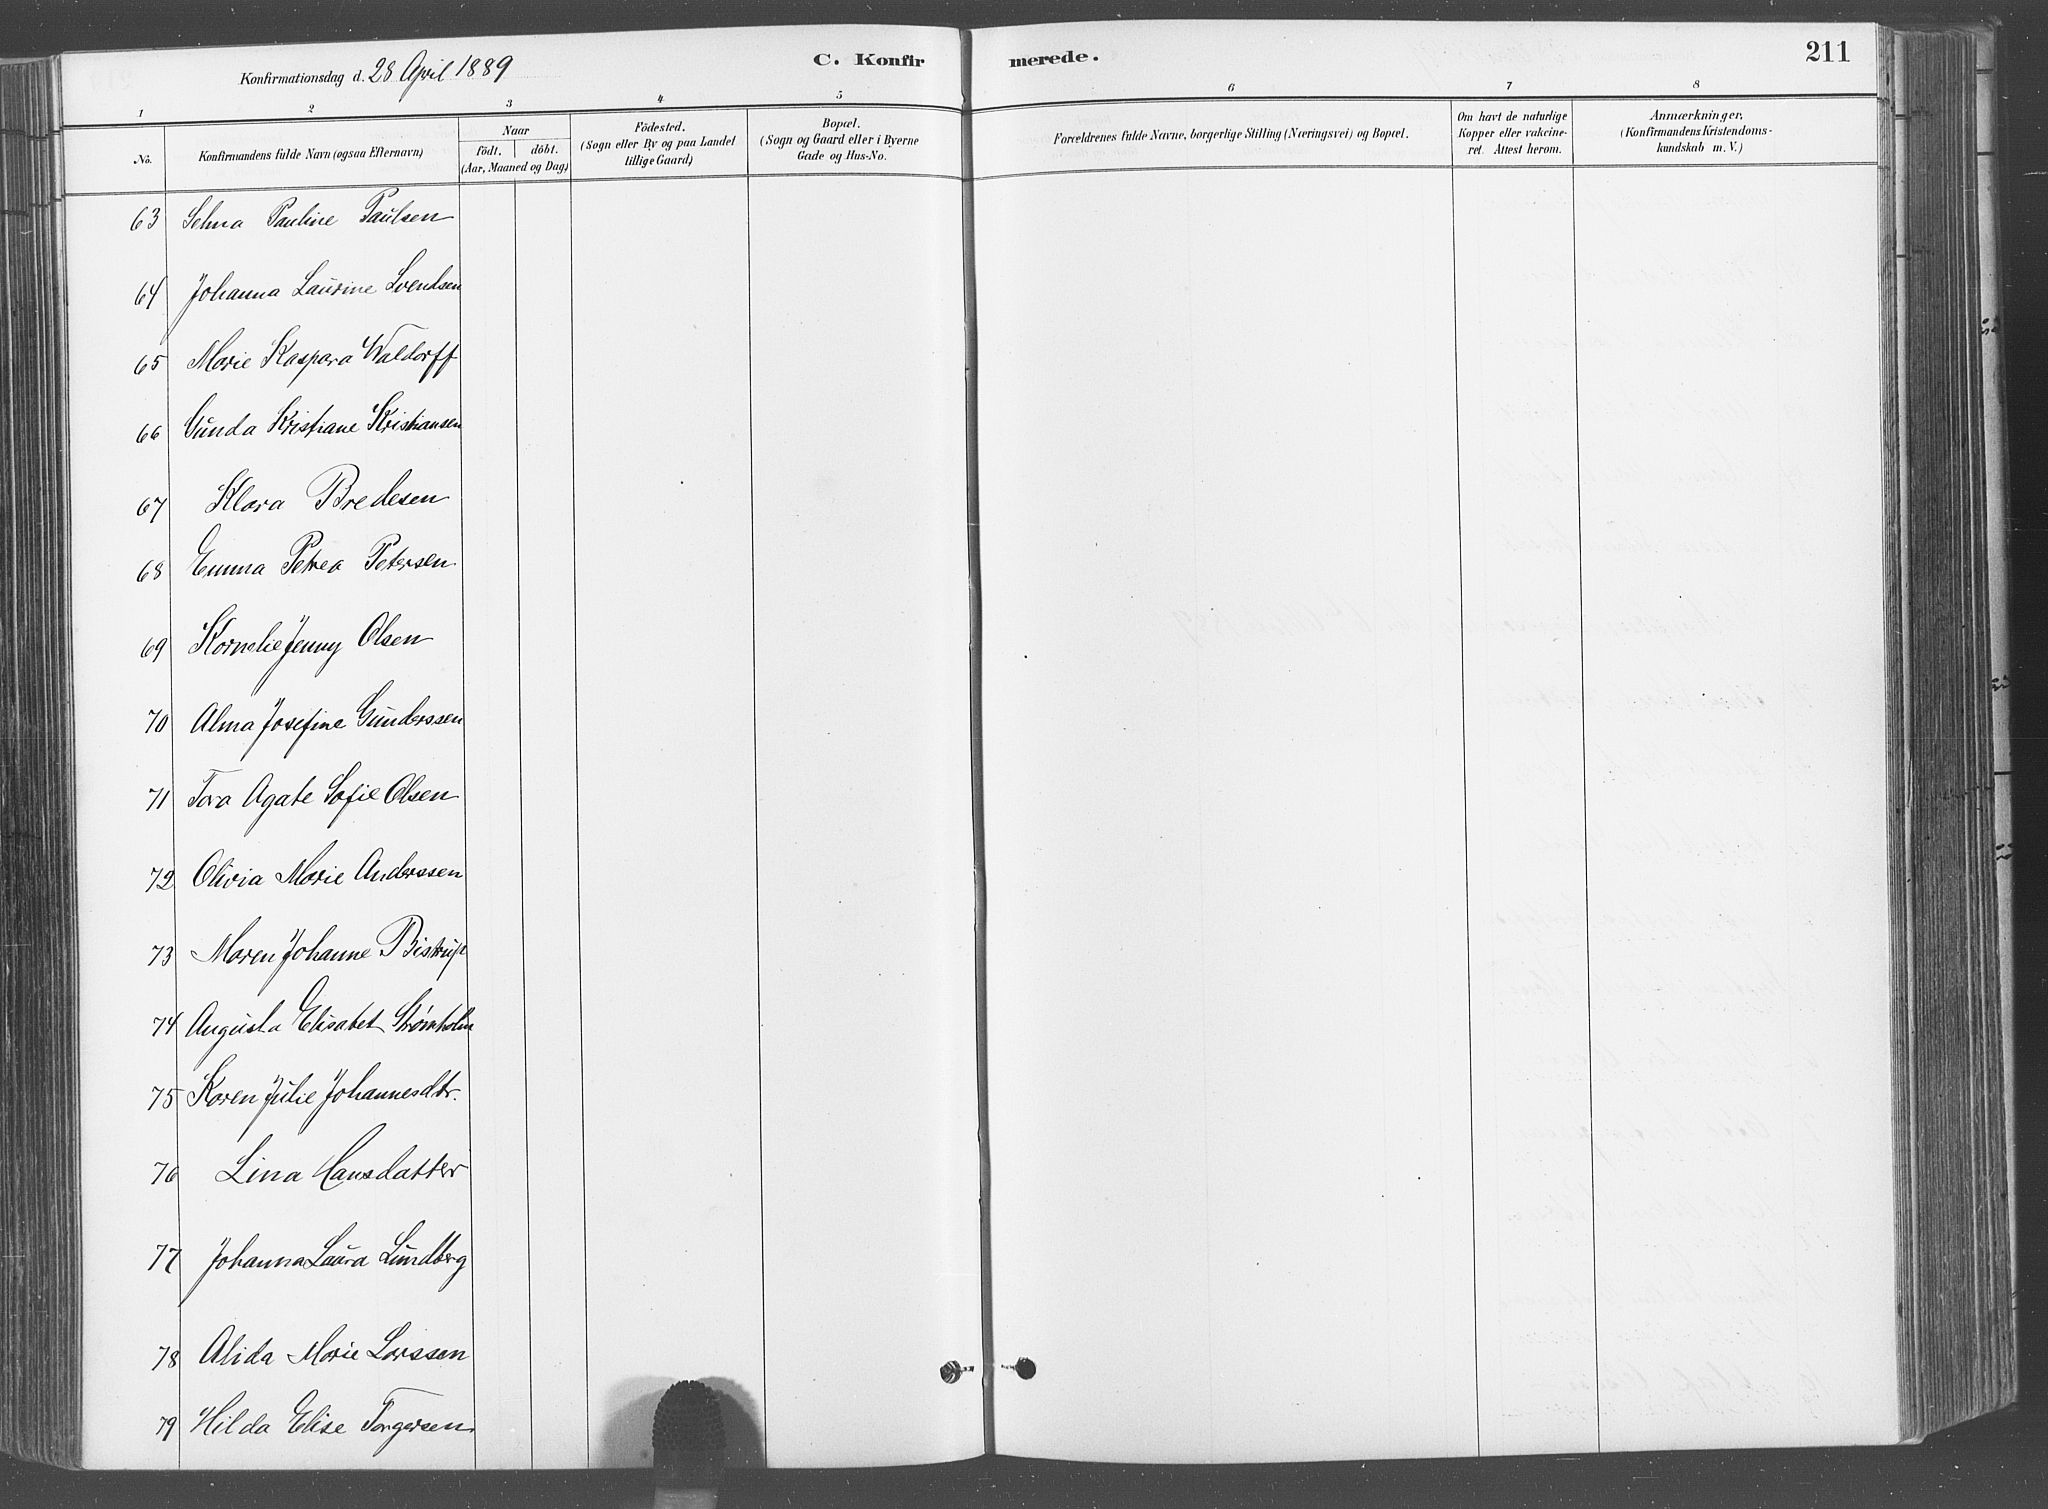 Konfirmationsdag d. 28 April 1889
C. Konfirmerede.
211
1 2 3 4 5 6 7 8
No.
Konfirmandens fulde Navn (ogsaa Efternavn)
Naar
födt. döbt.
(Aar, Maaned og Dag)
Födested.
(Sogn eller By og paa Landet
tillige Gaard)
Bopæl.
(Sogn og Gaard eller i Byerne
Gade og Hus-No.
Forældrenes fulde Navne, borgerlige Stilling (Næringsvei) og Bopæl.
Om havt de naturlige
Kopper eller vakcine-
ret. Attest herom.
Anmærkninger,
(Konfirmandens Kristendoms-
kundskab m. V.)
63 Selma Pauline Paulsen
64 Johanna Laurine Svendsen
65 Marie Kaspara Waldorff
66 Gunda Kristiane Kristiansen
67 Klara Bredesen
68 Emma Petrea Petersen
69 Kornelie Jenny Olsen
70 Alma Josefine Gunderssen
71 Tora Agate Sofie Olsen
72 Olivia Marie Anderssen
73 Maren Johanne Bistrup
74 Augusta Elisabet Strømholm
75 Karen Julie Johannesdtr.
76 Lina Hansdatter
77 Johanna Laura Lundberg
78 Alida Marie Larssen
79 Hilda Elise Torgersen